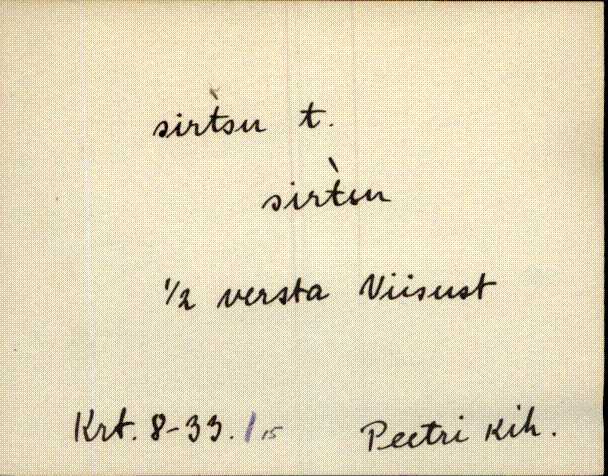 sir̀tsu t.
sir̀tsu
½ versta Viisust
Krt. 8-33. / 15 Peetri kih.